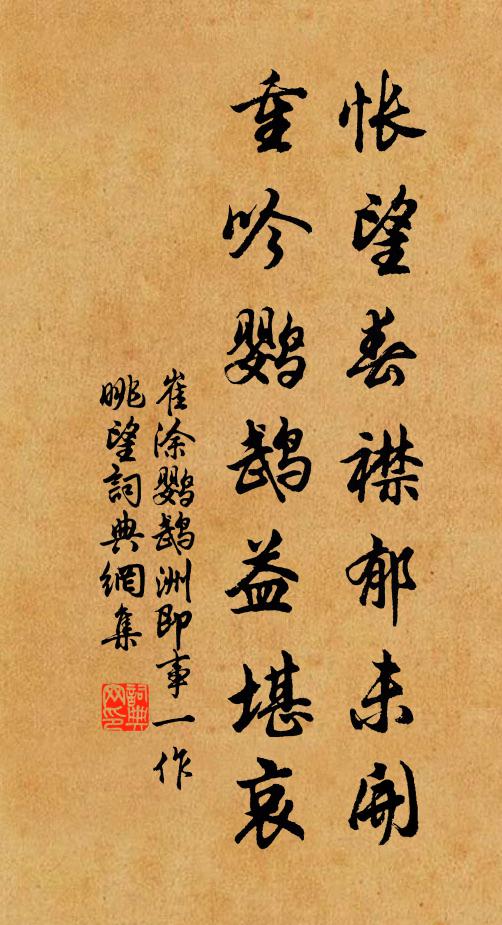 怅望春襟郁未开
重吟鹦鹉益堪哀
崔涂鹦鹉洲即事一作
眺望詞典網集
詞典
网印